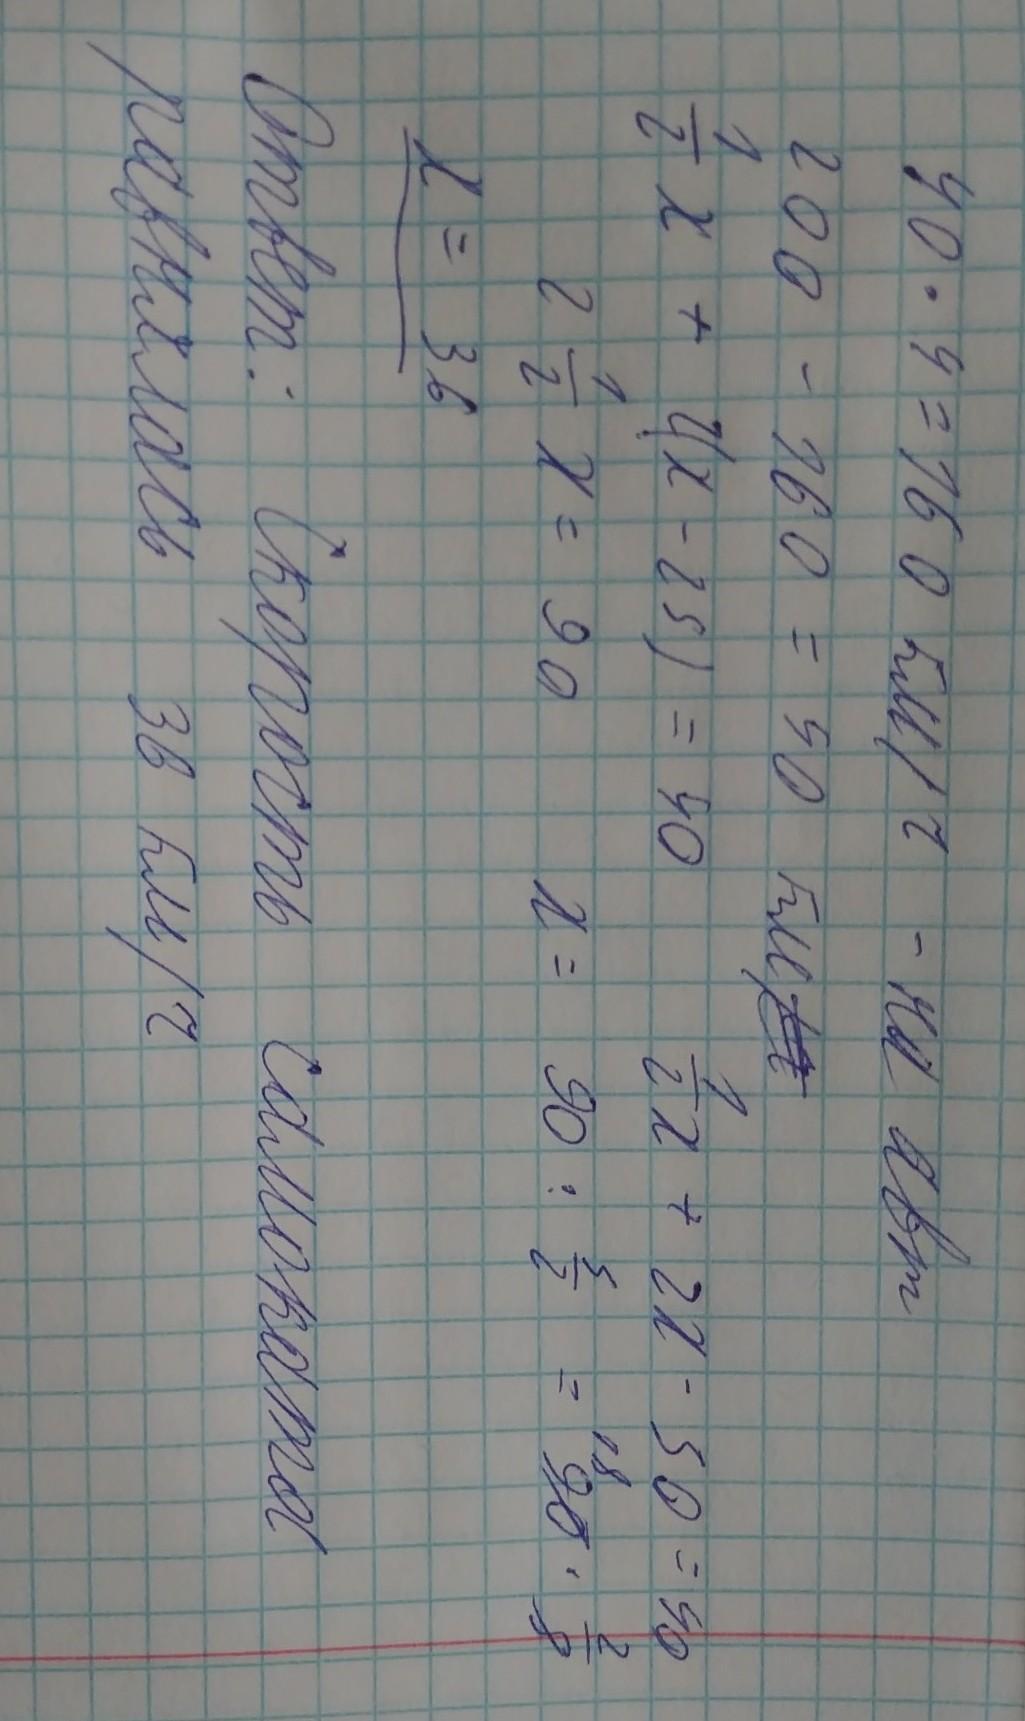 40 · 4 = 160 км/ч - на авт
200 - 160 = 40 км
1/2 x + 2(x - 25) = 40    1/2 x + 2x - 50 = 40
2 1/2 x = 90    x = 90 : 5/2 = 90 · 2/5 18
x = 36
Ответ: Скорость самоката
равнялась 36 км/ч